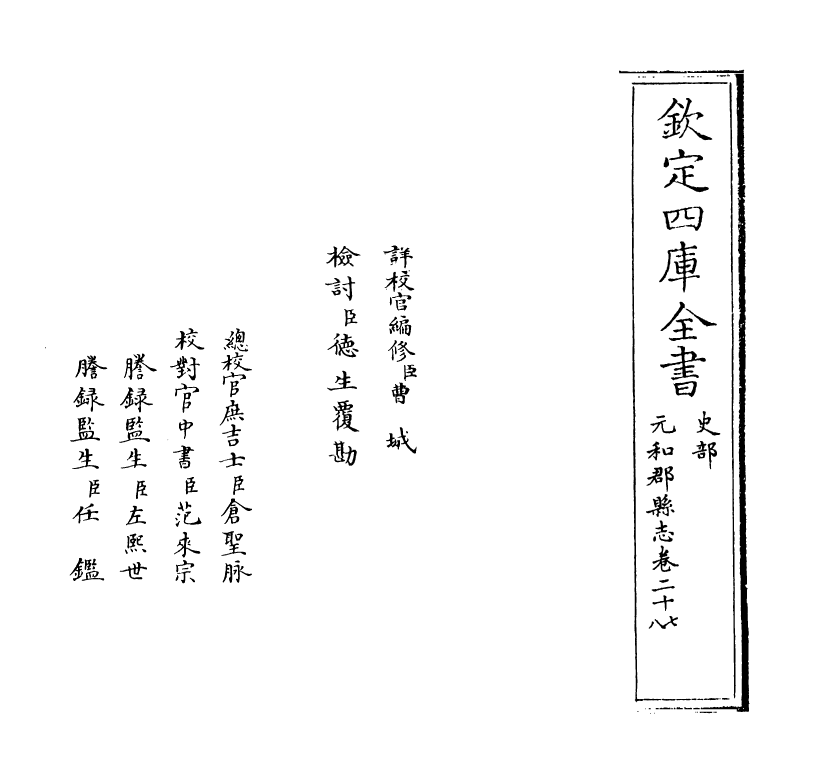 欽定四庫全書
史部
元和郡縣志卷二十七八
詳校官編修臣曹城
檢討臣德生覆勘
總校官庶吉士臣倉聖脉
校對官中書臣范來宗
謄録監生臣左熙世
謄録監生臣任鑑